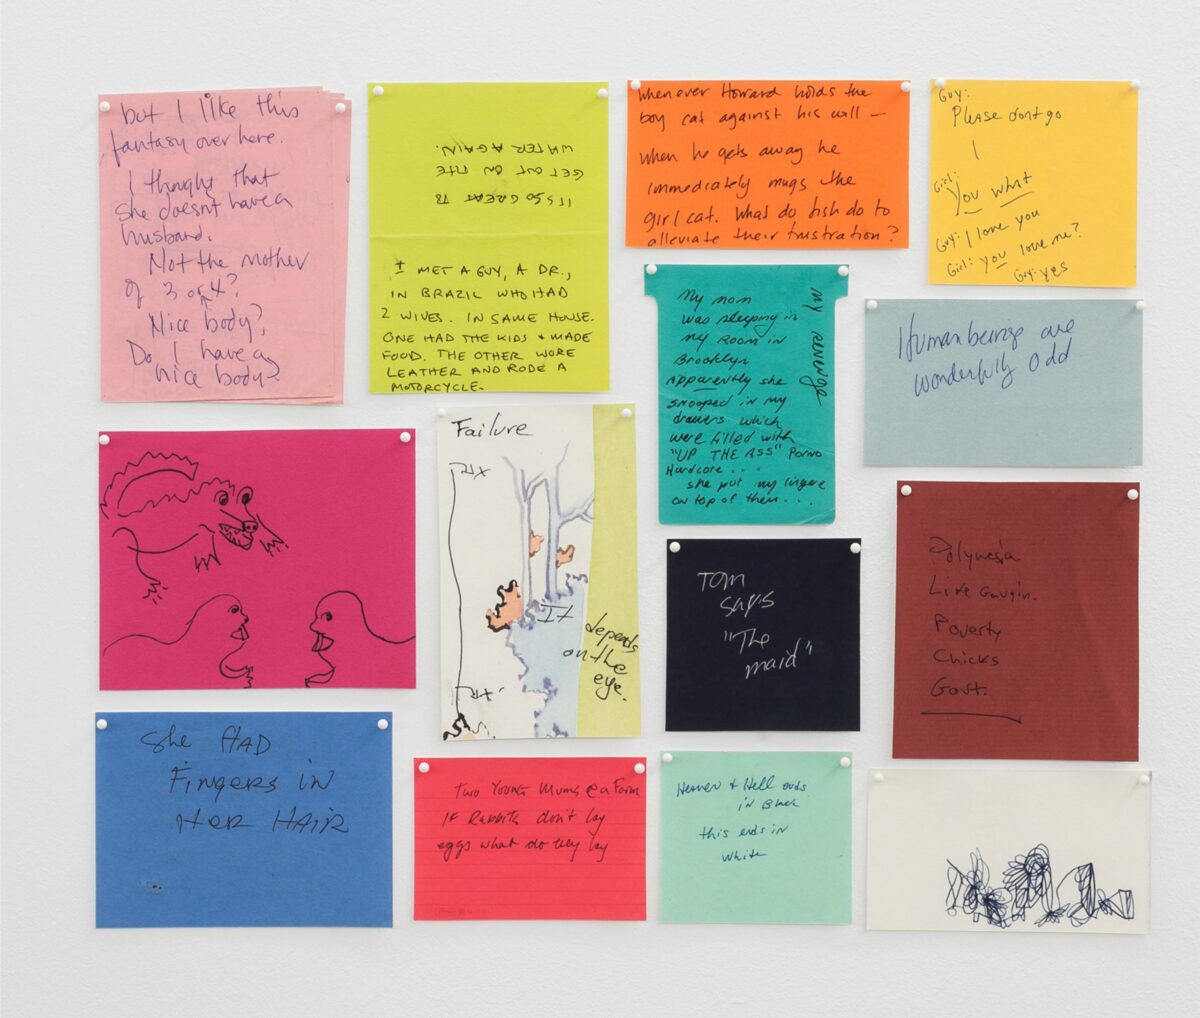 but I like this
fantasy over here.
I thought that
she doesnt have a
husband.
Not the mother
of 3 or 4?
Nice body?
Do I have a
nice body?
IT'S SO GREAT TO
GET OUT ON THE
WATER AGAIN.
I MET A GUY, A DR.,
IN BRAZIL WHO HAD
2 WIVES. IN SAME HOUSE.
ONE HAD THE KIDS + MADE
FOOD. THE OTHER WORE
LEATHER AND RODE A
MOTORCYCLE.
Whenever Howard holds the
boy cat against his will —
When he gets away he
immediately mugs the
girl cat. What do fish do to
alleviate their frustration?
Guy:
Please dont go
I
Girl:
You what
Guy: I love you
Girl: you love me?
Guy: yes
My mom
was sleeping in
my room in
Brooklyn
Apparently she
snooped in my
drawers which
were filled with
"UP THE ASS" Porno
Hardcore . . .
she put my lingere
on top of them . . .
my revenge
Human beings are
wonderfully odd
Failure
It
depends
on the
eye.
TOM
says
"The
maid"
Polynesia
Like Gaugin.
Poverty
Chicks
Govt.
She HAD
FINGERS IN
HER HAIR
Two Young Mums @ a Farm
If Rabbits don't lay
eggs what do they lay
Heaven & Hell ends
in Black
this ends in
White